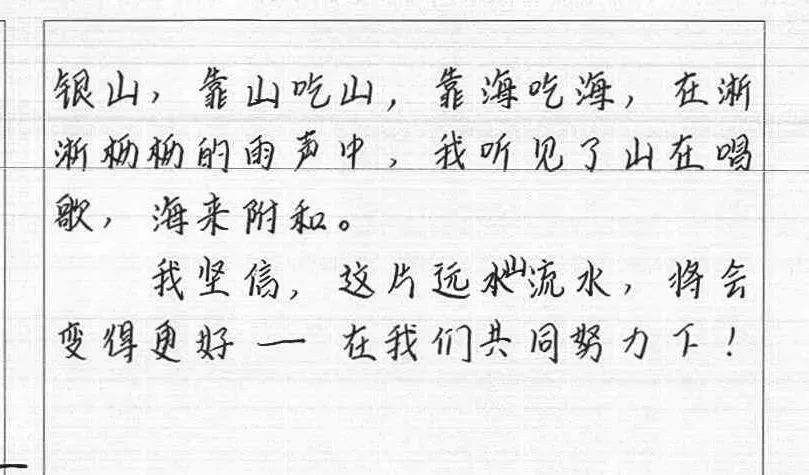 银山，靠山吃山，靠海吃海，在淅
淅栖栖的雨声中，我听见了山在唱
歌，海来附和。
我坚信，这片远山流水，将会
变得更好——在我们共同努力下！